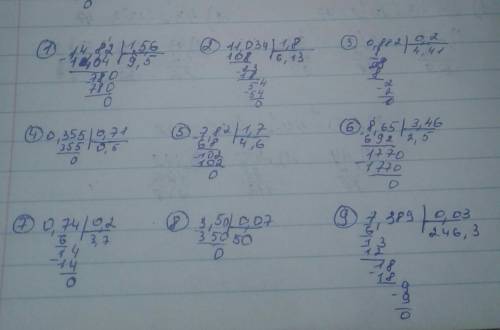 0
① 14,82 | 1,56
- 1404 9,5
780
- 780
0
② 11,034 | 1,8
108 6,13
- 23
18
54
- 54
0
③ 0,882 | 0,2
4,41
8
- 2
2
0
④ 0,355 | 0,71
355 0,5
0
⑤ 7,82 | 1,7
68 4,6
- 102
102
0
⑥ 8,65 | 3,46
692 2,5
1770
- 1770
0
⑦ 0,74 | 0,2
6 3,7
14
- 14
0
⑧ 3,50 | 0,07
350 50
0
⑨ 7,389 | 0,03
6 246,3
13
12
- 18
18
9
- 9
0